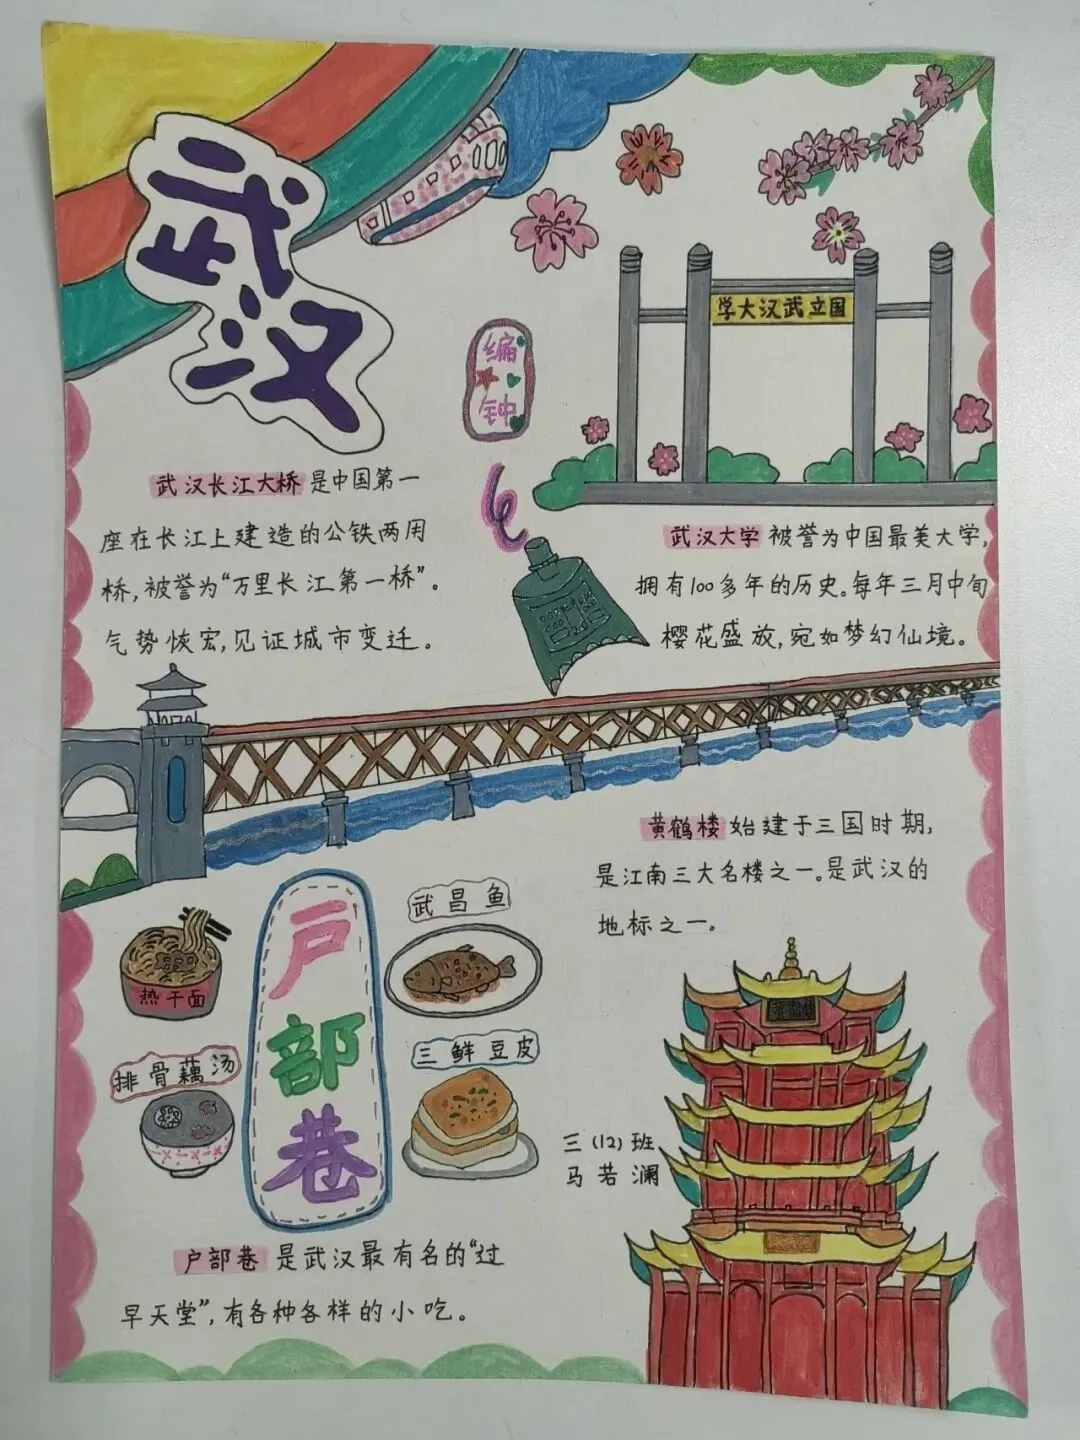 武汉
学大汉武立国
编钟
武汉长江大桥是中国第一
座在长江上建造的公铁两用
桥,被誉为“万里长江第一桥”。
气势恢宏,见证城市变迁。
武汉大学被誉为中国最美大学,
拥有100多年的历史。每年三月中旬
樱花盛放,宛如梦幻仙境。
黄鹤楼始建于三国时期,
是江南三大名楼之一。是武汉的
地标之一。
黄鹤楼
热干面
排骨藕汤
户部巷
武昌鱼
三鲜豆皮
三(12)班
马若澜
户部巷是武汉最有名的“过
早天堂”,有各种各样的小吃。